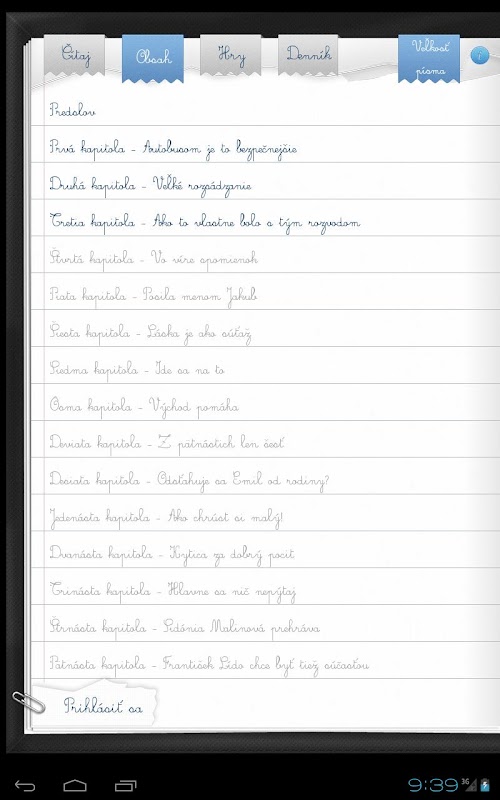 Čítaj
Obsah
Hry
Denník
Veľkosť
písma
i
Predslov
Prvá kapitola - Autobusom je to bezpečnejšie
Druhá kapitola - Veľké rozsádzanie
Tretia kapitola - Ako to vlastne bolo s tým rozvodom
Štvrtá kapitola - Vo víre spomienok
Piata kapitola - Posila menom Jakub
Šiesta kapitola - Láska je ako súťaž
Siedma kapitola - Ide sa na to
Ôsma kapitola - Východ pomáha
Deviata kapitola - Z pätnástich len šesť
Desiata kapitola - Odsťahuje sa Emil od rodiny?
Jedenásta kapitola - Ako chrúst si malý!
Dvanásta kapitola - Kytica za dobrý pocit
Trinásta kapitola - Hlavne sa nič nepýtaj
Štrnásta kapitola - Sidónia Malinová prehráva
Pätnásta kapitola - František Lído chce byť tiež súčasťou
Prihlásiť sa
9:39 3G